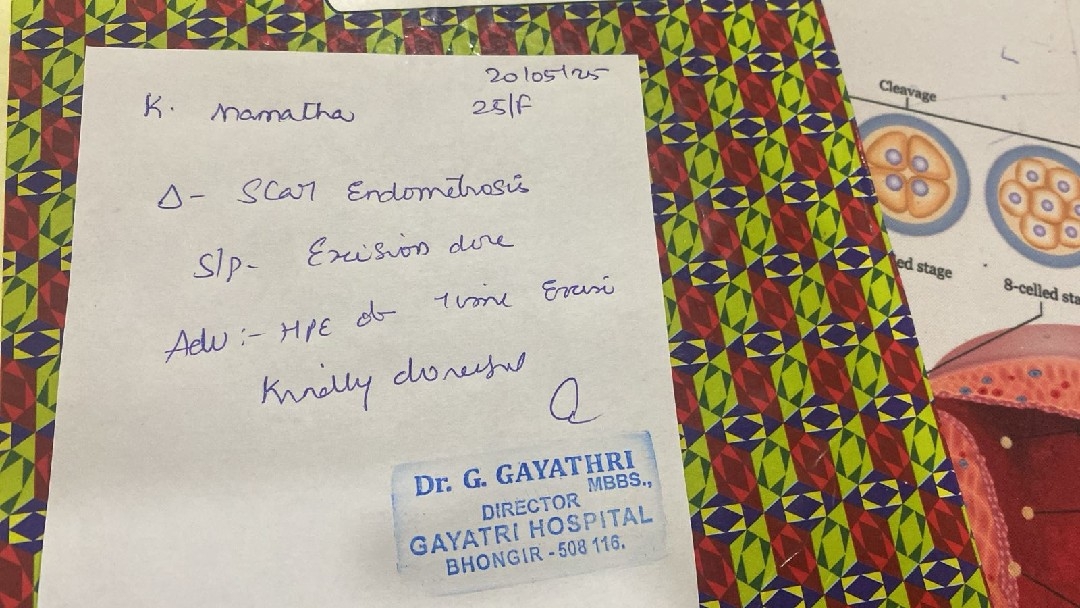 20/05/25
K. Mamatha 25/F
Δ- Scar Endometrosis
S/p- Excision done
Adv:- HPE of
Kindly do
Dr. G. GAYATHRI
MBBS.,
DIRECTOR
GAYATRI HOSPITAL
BHONGIR - 508 116.
Cleavage
ed stage
8-celled sta